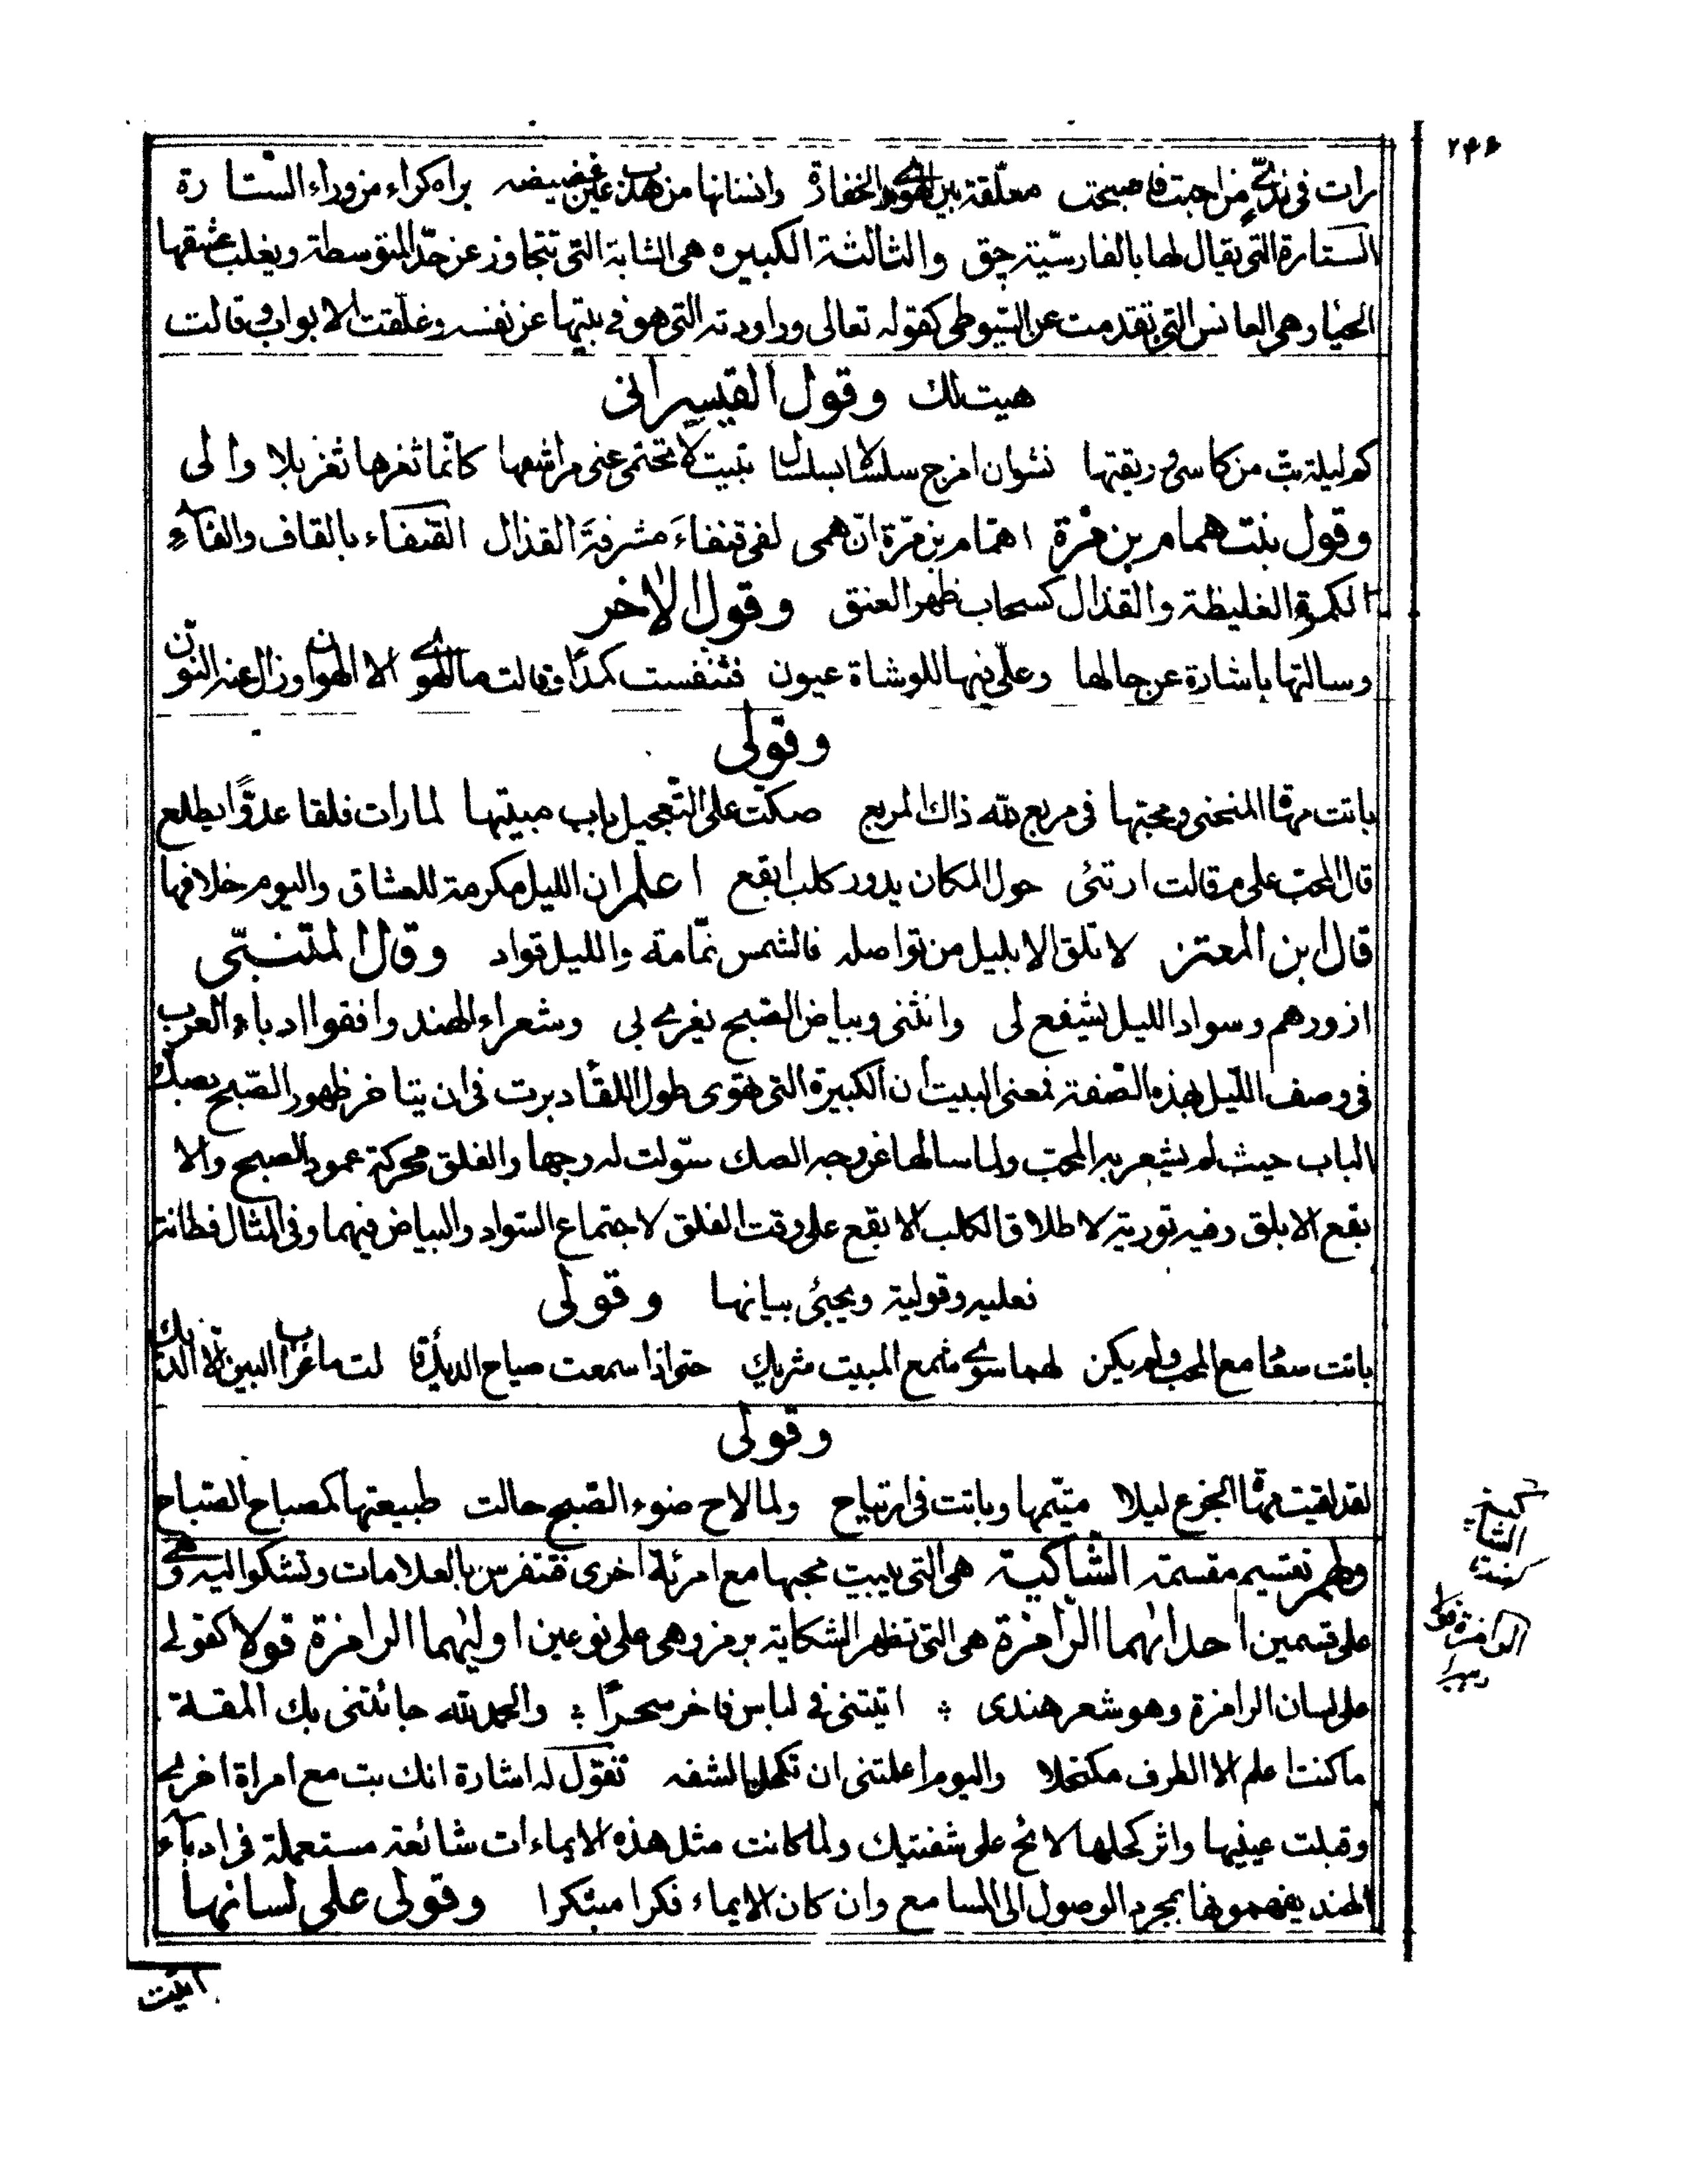 ٢٤٦
رات في نديّ من احبت فاصبحت معلّقة بين الهوى والخفارة وانسانها من هدب عين غضيضه يراه كراء من وراء الستارة
الستارة التي يقال لها بالفارسيّة چق والثالثة الكبيره هي الشابة التي تتجاوز عن حدّ المتوسطة ويغلب عشقها
الحيا وهي العانس التي تقدمت عن السيوطي كقوله تعالى وراودته التي هو في بيتها عن نفسه وغلّقت الابواب وقالت
هيت لك وقول القيسراني
كم ليلة بتّ من كاسي وريقتها نشوان امزج سلسالا بسلسال تبيت لا تحتمي عني مراشفها كانّما ثغرها ثغر بلا والى
وقول بنت همام بن مرة اهمّام بن مرّة انّ همى لفي قنفاءَ مشرفةَ القذال القنفاء بالقاف والفآء
الكمرة الغليظة والقذال كسحاب ظهر العنق وقول الاخر
وسالتها باشارة عن حالها وعلّي فيها للوشاة عيون فتنفست كمدًا وقالت ما الهوى الا الهوان وزال عنه النون
وقولي
باتت مهاة المنحنى ومحبتها في مربع لله ذاك المربع صكت على التعجيل باب مبيتها لما رات فلقا عدوًّا يطلع
قال المحب على م قالت ارتئى حول المكان يدور كلب ابقع اعلم ان الليل مكرمة للعشاق واليوم خلافها
قال ابن المعتز لا تلق الا بليل من تواصله فالشمس نمّامة والليل قواد وقال المتنبّي
ازورهم وسواد الليل يشفع لى وانثنى وبياض الصبح يغرى بي وشعراء الهند وافقوا ادباء العرب
في وصف اللّيل بهذه الصّفة فمعنى البيت ان الكبيرة التي تهوى طول اللقا دبرت في ان يتاخر ظهور الصّبح بصك
الباب حيث لم يشعر به المحبّ ولما سالها عن وجه الصك سوّلت له وجها والفلق محركة عمود الصبح والا
بقع الابلق وفيه تورية لاطلاق الكلب الابقع على وقت الفلق لاجتماع السّواد والبياض فيهما وفي المثال فطانة
نعليه وقولية ويجئي بيانها وقولي
باتت سعاد مع المحب ولم يكن لهما سوى شمع المبيت شريك حتى اذا سمعت صياح الديك قالت ما غراب البين الا الديك
وقولي
لقد لقيت مهاة الجزع ليلا متيّمها وباتت في ارتياح ولما لاح ضوء الصّبح حالت طبيعتها كمصباح الصّباح
ولهم تقسيم مقسمة الشاكية هي التي يبيت محبها مع امرئة اخرى فتفرس بالعلامات وتشكو اليه وهي
على قسمين احداهما الرامزة هي التي تظهر الشكاية برمز وهي على نوعين اوليهما الرامزة قولا كقولى
على لسان الرامزة وهو شعر هندى اتيتني في لباس فاخر سحرًا والحمد لله جائتني بك المقة
ما كنت اعلم الا الطرف مكتحلا واليوم اعلمتني ان تكحل الشفه تقول له اشارة انك بت مع امراة اخرى
وقبلت عينيها واثر كحلها لائح على شفتيك ولما كانت مثل هذه الايماءات شائعة مستعملة في ادبآء
الهند يفهمونها بمجرد الوصول الى السامع وان كان الايماء فكرا مبتكرا وقولى على لسانها
الشاكية
الرامزة قولا
اتيت